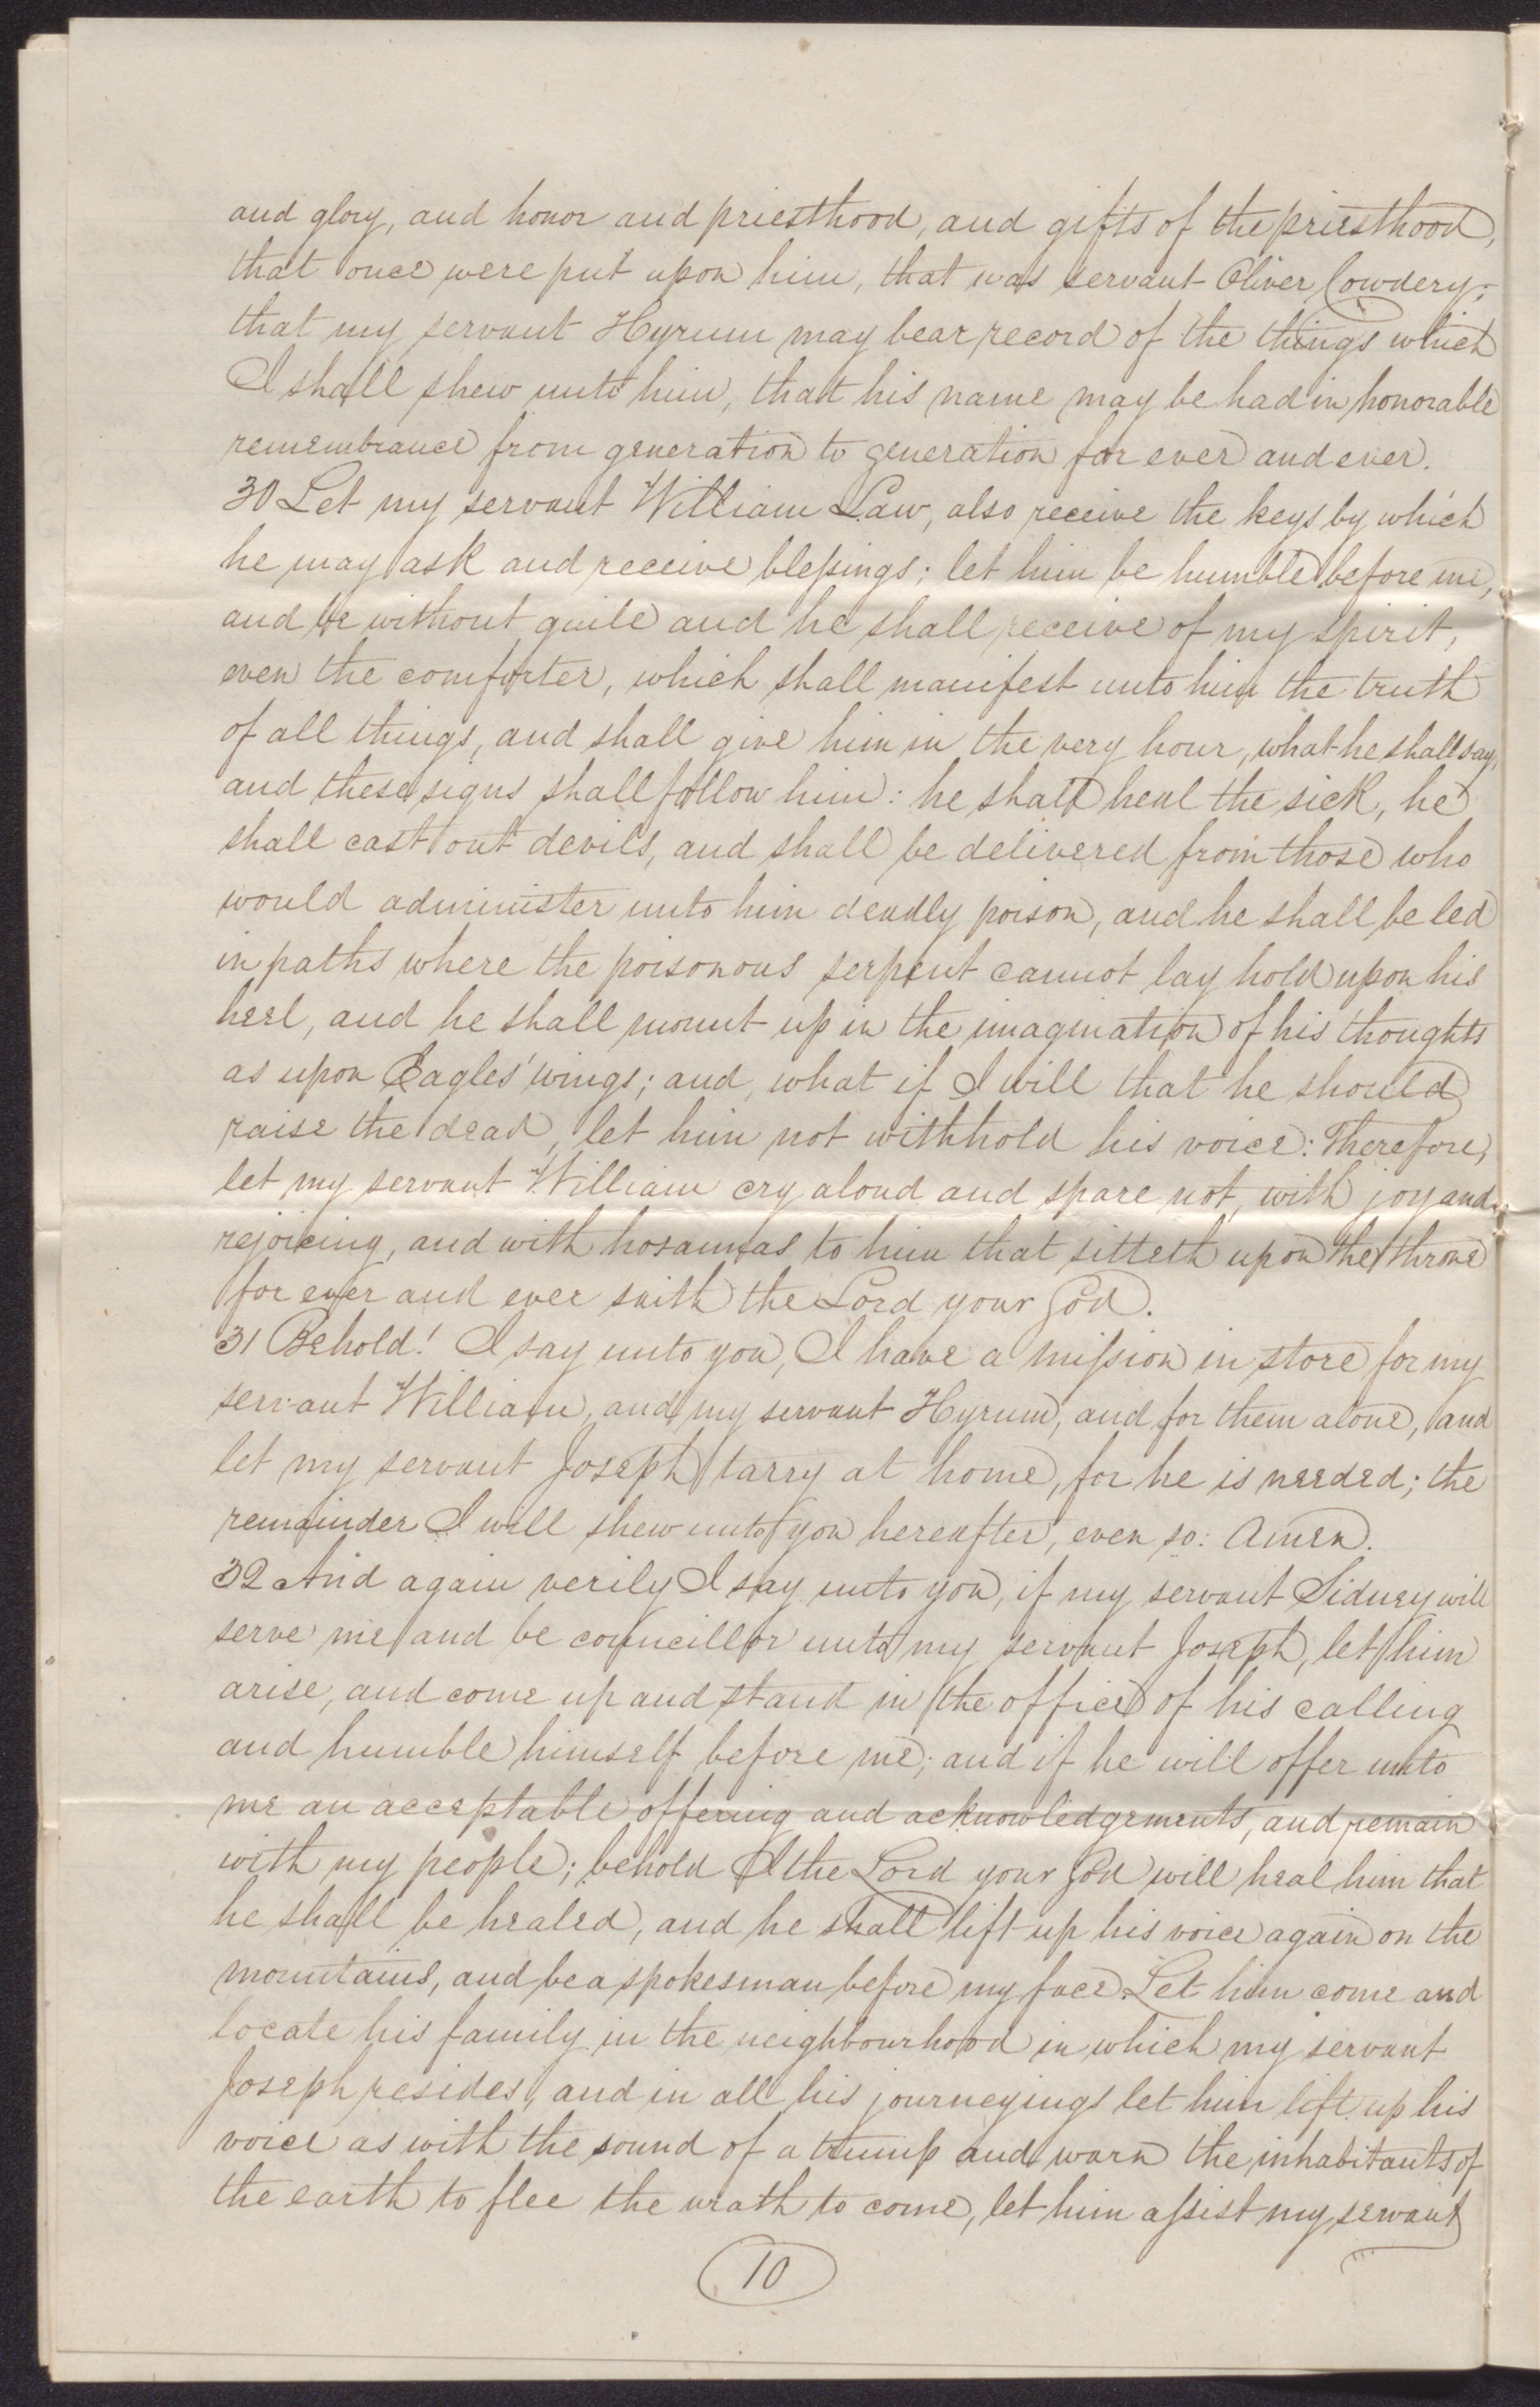 and glory, and honor and priesthood, and gifts of the priesthood,
that once were put upon him, that was servant Oliver Cowdery;
that my servant Hyrum may bear record of the things which
I shall shew unto him, that his name may be had in honorable
remembrance from generation to generation for ever and ever.
30 Let my servant William Law, also receive the keys by which
he may ask and receive bleſsings; let him be humble before me,
and be without guile and he shall receive of my spirit,
even the comforter, which shall manifest unto him the truth
of all things, and shall give him in the very hour, what he shall say,
and these signs shall follow him: he shall heal the sick, he
shall cast out devils, and shall be delivered from those who
would administer unto him deadly poison, and he shall be led
in paths where the poisonous serpent cannot lay hold upon his
heel, and he shall mount up in the imagination of his thoughts
as upon Eagles' wings; and, what if I will that he should
raise the dead, let him not withhold his voice: Therefore,
let my servant William cry aloud and spare not, with joy and
rejoicing, and with hosannas to him that sitteth upon the throne
for ever and ever saith the Lord your God.
31 Behold! I say unto you, I have a miſsion in store for my
servant William, and my servant Hyrum, and for them alone, and
let my servant Joseph tarry at home, for he is needed; the
remainder I will shew unto you hereafter, even so: Amen.
32 And again verily I say unto you, if my servant Sidney will
serve me and be councillor unto my servant Joseph, let him
arise, and come up and stand in the office of his calling
and humble himself before me; and if he will offer unto
me an acceptable offering and acknowledgements, and remain
with my people; behold I the Lord your God will heal him that
he shall be healed, and he shall lift up his voice again on the
mountains, and be a spokesman before my face. Let him come and
locate his family in the neighbourhood in which my servant
Joseph resides, and in all his journeyings let him lift up his
voice as with the sound of a trump and warn the inhabitants of
the earth to flee the wrath to come, let him aſsist my servant
10